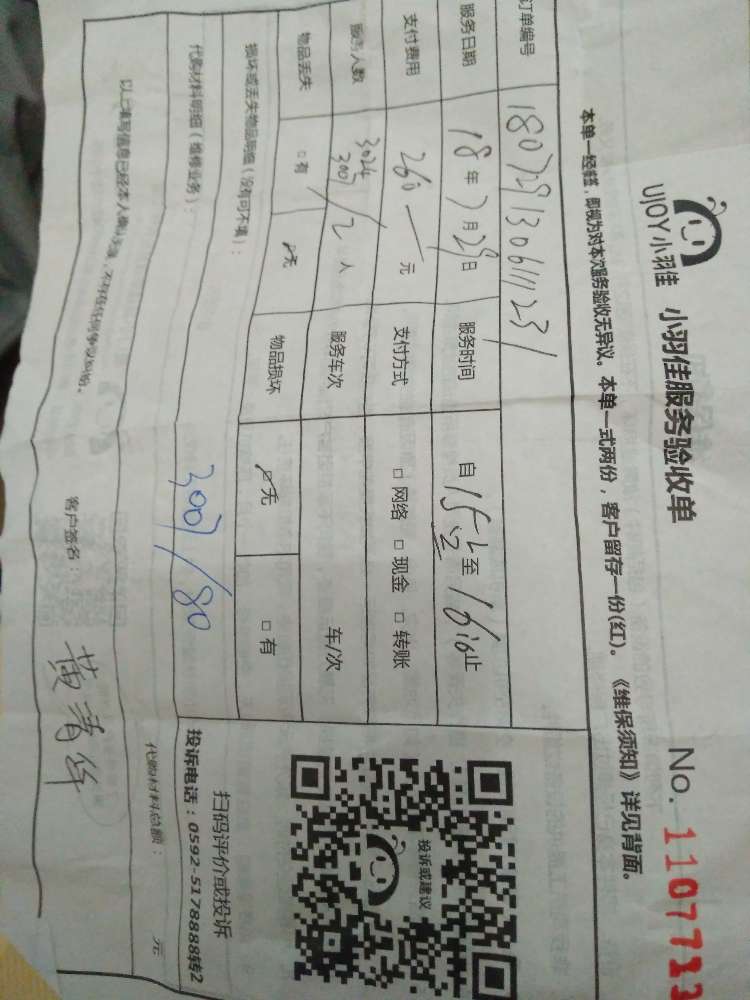 UJOY小羽佳 小羽佳服务验收单
No. 1107713
本单一经签署，即视为对本次服务验收无异议。本单一式两份，客户留存一份(红)。《维保须知》详见背面。
订单编号 180729130611231
服务日期 18年7月29日 服务时间 自15 至16 止
支付费用 260一元 支付方式 □网络 □现金 □转账
服务人数 3024 3007/2人 服务车次 车/次
物品丢失 □有 ☑无 物品损坏 ☑无 □有
损坏或丢失物品明细（没有可不填）：
3007/80
代购材料明细（维修业务）：
代购材料总额： 元
以上填写信息已经本人确认无误，不存在任何争议纠纷。
客户签名：黄青华
投诉或建议
扫码评价或投诉
投诉电话：0592-5178888转2